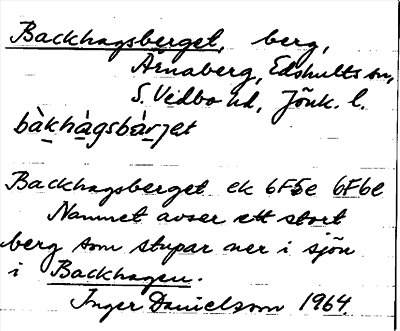 Backhagsberget, berg,
Arnaberg, Edshults sn,
S. Vedbo hd, Jönk. l.
bàkhàgsbàrjet
Backhagsberget ek 6F5e 6F6e
Namnet avser ett stort
berg som stupar ner i sjön
i Backhagen.
Inger Danielsson 1964.